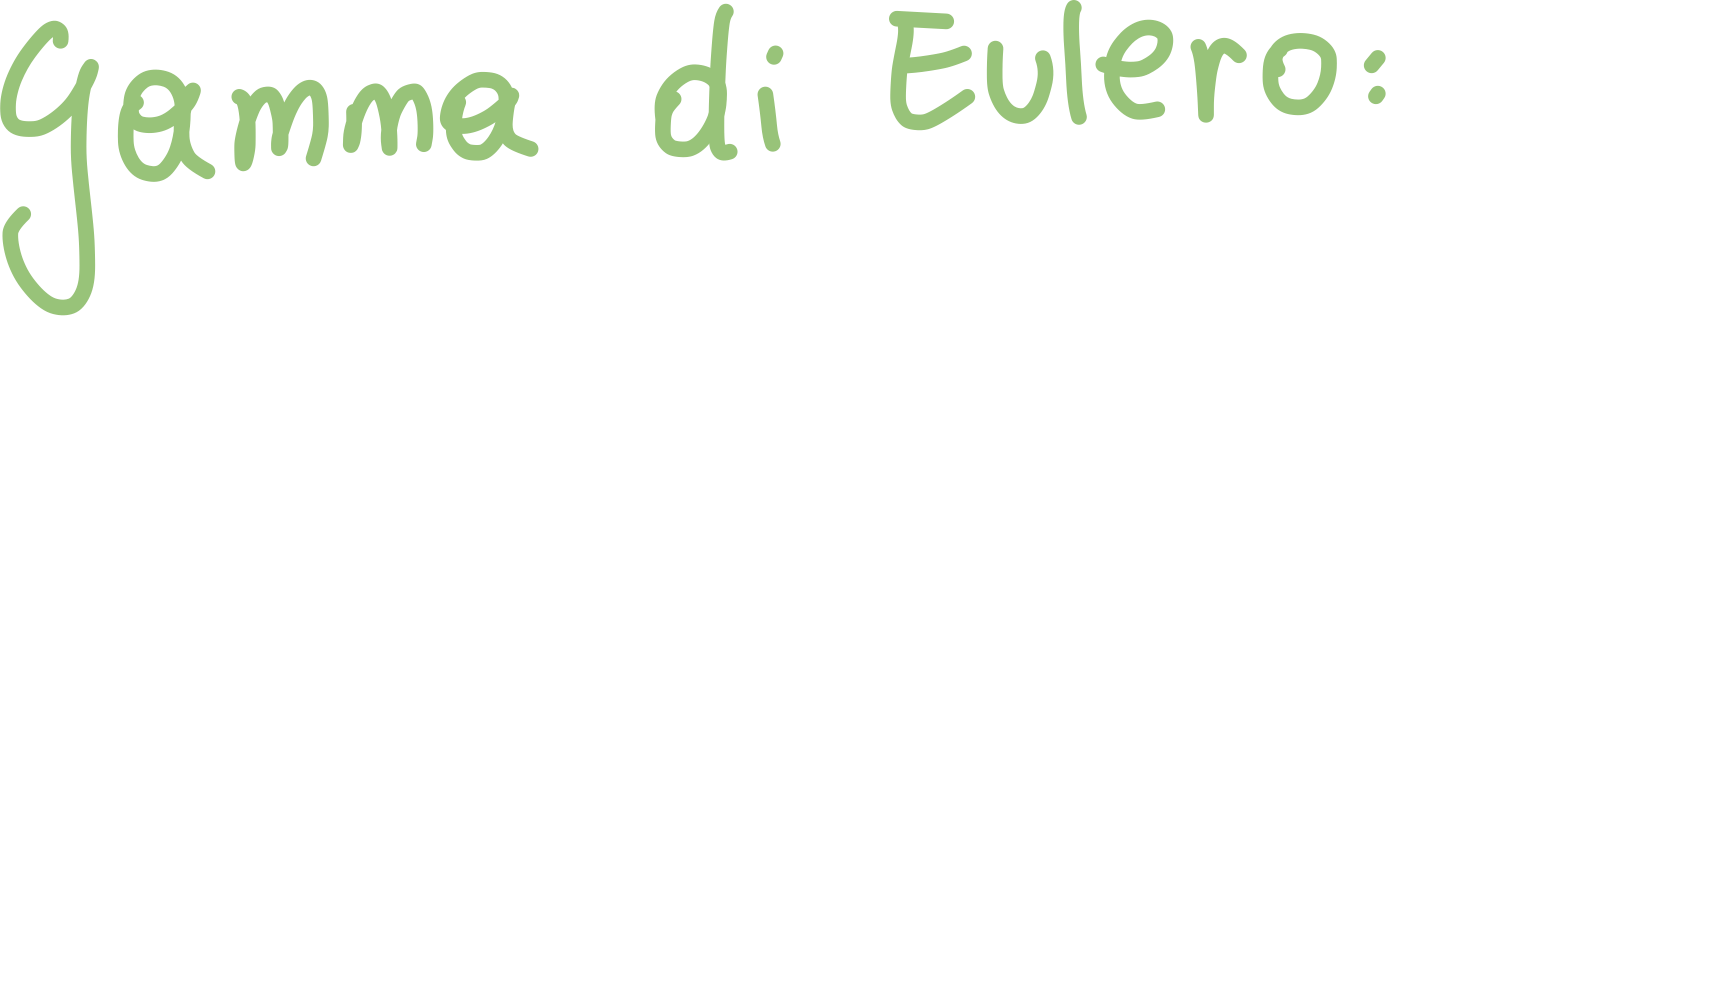 Gamma di Eulero: